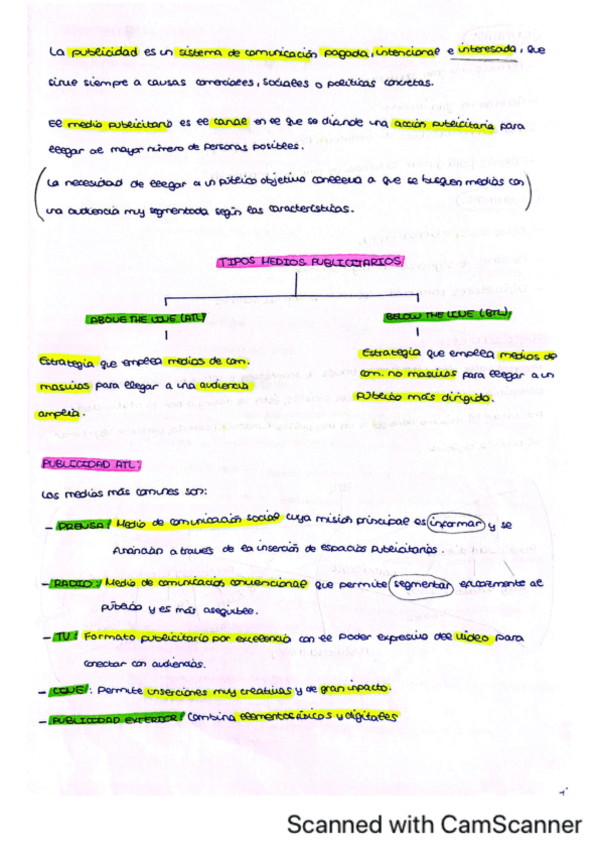 La publicidad es un sistema de comunicación pagada, intencional e interesada, que
sirve siempre a causas comerciales, sociales o políticas concretas.
El medio publicitario es el canal en el que se difunde una acción publicitaria para
llegar al mayor número de personas posibles.
(La necesidad de llegar a un público objetivo conlleva a que se busquen medios con
una audiencia muy segmentada según las características.)
TIPOS MEDIOS PUBLICITARIOS
ABOVE THE LINE (ATL)
BELOW THE LINE (BTL)
Estrategia que emplea medios de com.
masivos para llegar a una audiencia
amplia.
Estrategia que emplea medios de
com. no masivos para llegar a un
público más dirigido.
PUBLICIDAD ATL:
Los medios más comunes son:
- PRENSA: Medio de comunicación social cuya misión principal es informar y se
financian a través de la inserción de espacios publicitarios.
- RADIO: Medio de comunicación convencional que permite segmentar eficazmente al
público y es más asequible.
- TV: Formato publicitario por excelencia con el poder expresivo del video para
conectar con audiencias.
- CINE: Permite inserciones muy creativas y de gran inpacto.
- PUBLICIDAD EXTERIOR: Combina elementos físicos y digitales
Scanned with CamScanner